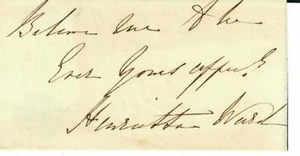 Believe me to be
Ever Yours affec.ly
Henrietta Ward